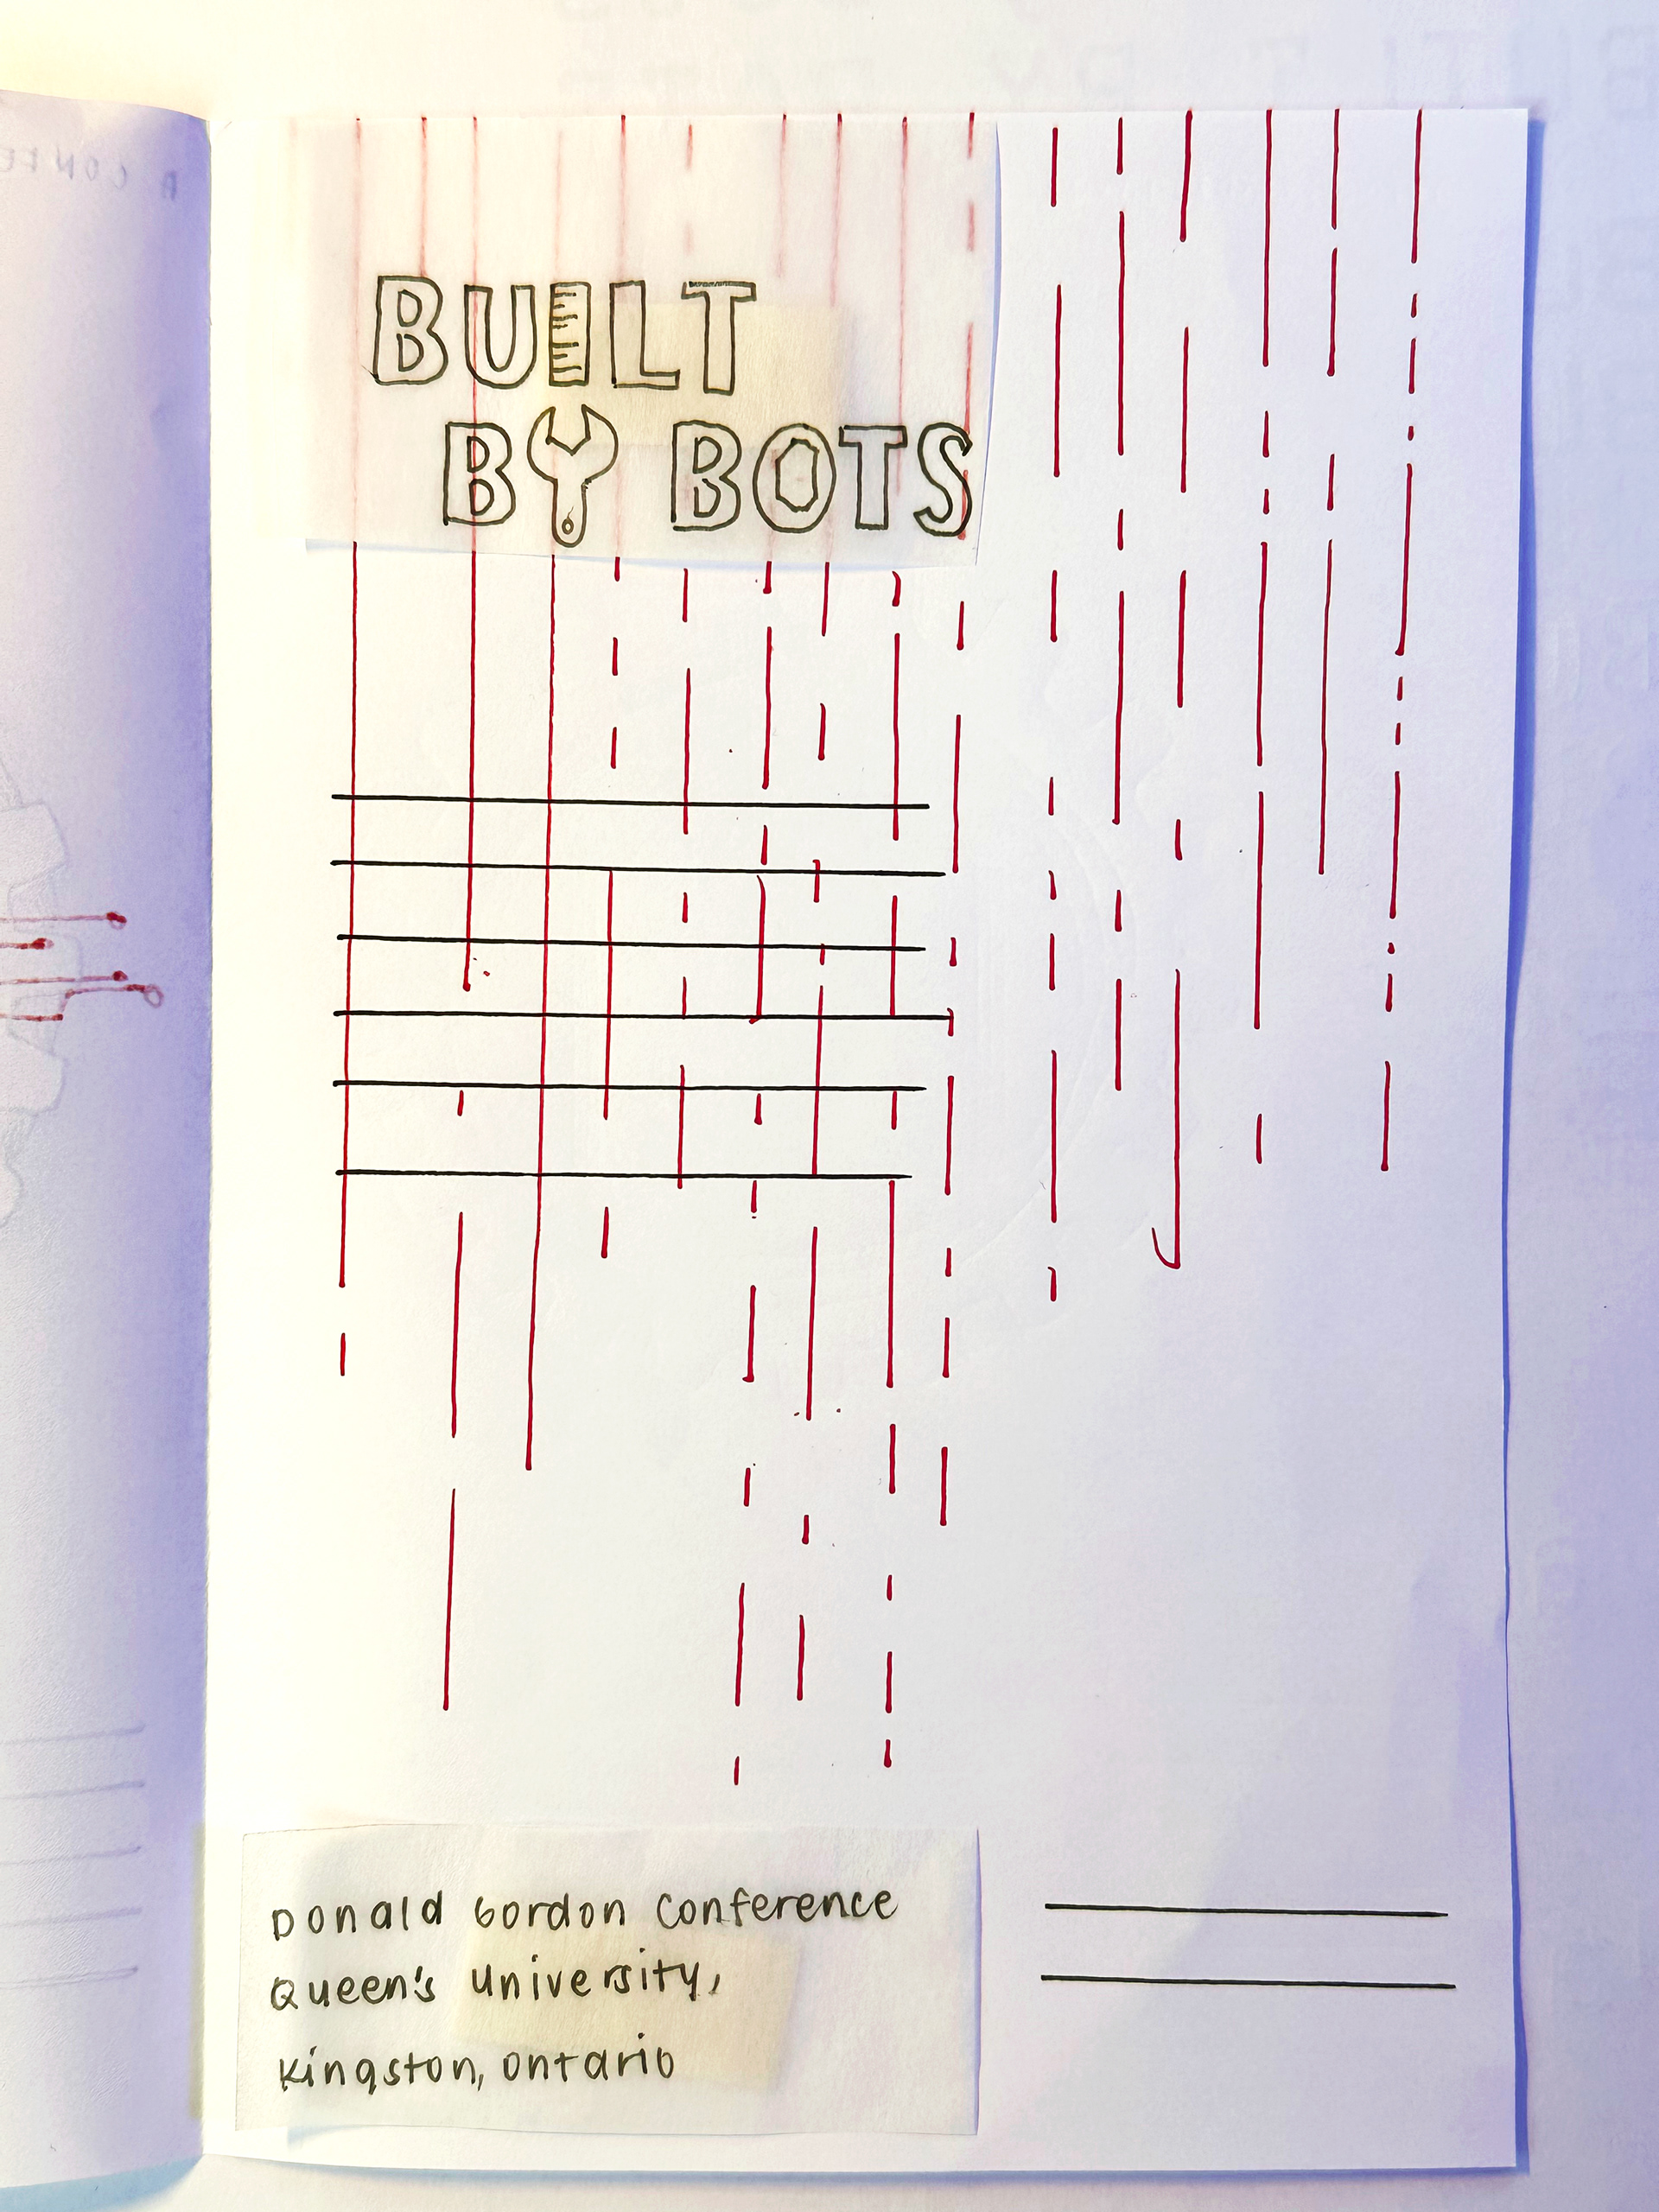 BUILT
BY BOTS
Donald Gordon Conference
Queen's University,
Kingston, Ontario